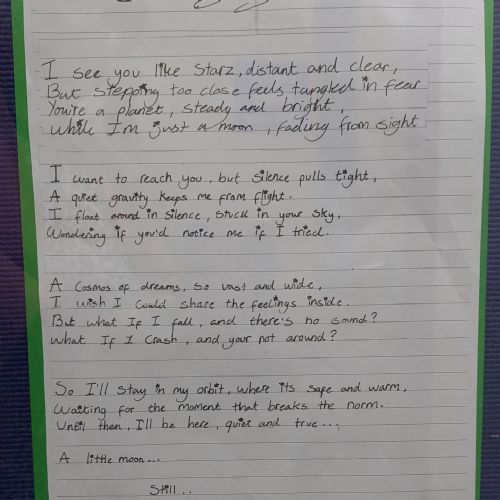 I see you like Starz, distant and clear,
But stepping too close feels tangled in fear
You're a planet, steady and bright,
While I'm just a moon, fading from sight
I want to reach you, but silence pulls tight,
A quiet gravity keeps me from flight.
I float around in silence, stuck in your sky,
Wondering if you'd notice me if I tried.
A cosmos of dreams, so vast and wide,
I wish I could share the feelings inside.
But what If I fall, and there's no sound?
What If I crash, and your not around?
So I'll stay in my orbit, where its safe and warm,
Waiting for the moment that breaks the norm.
Until then, I'll be here, quiet and true....
A little moon...
Still..